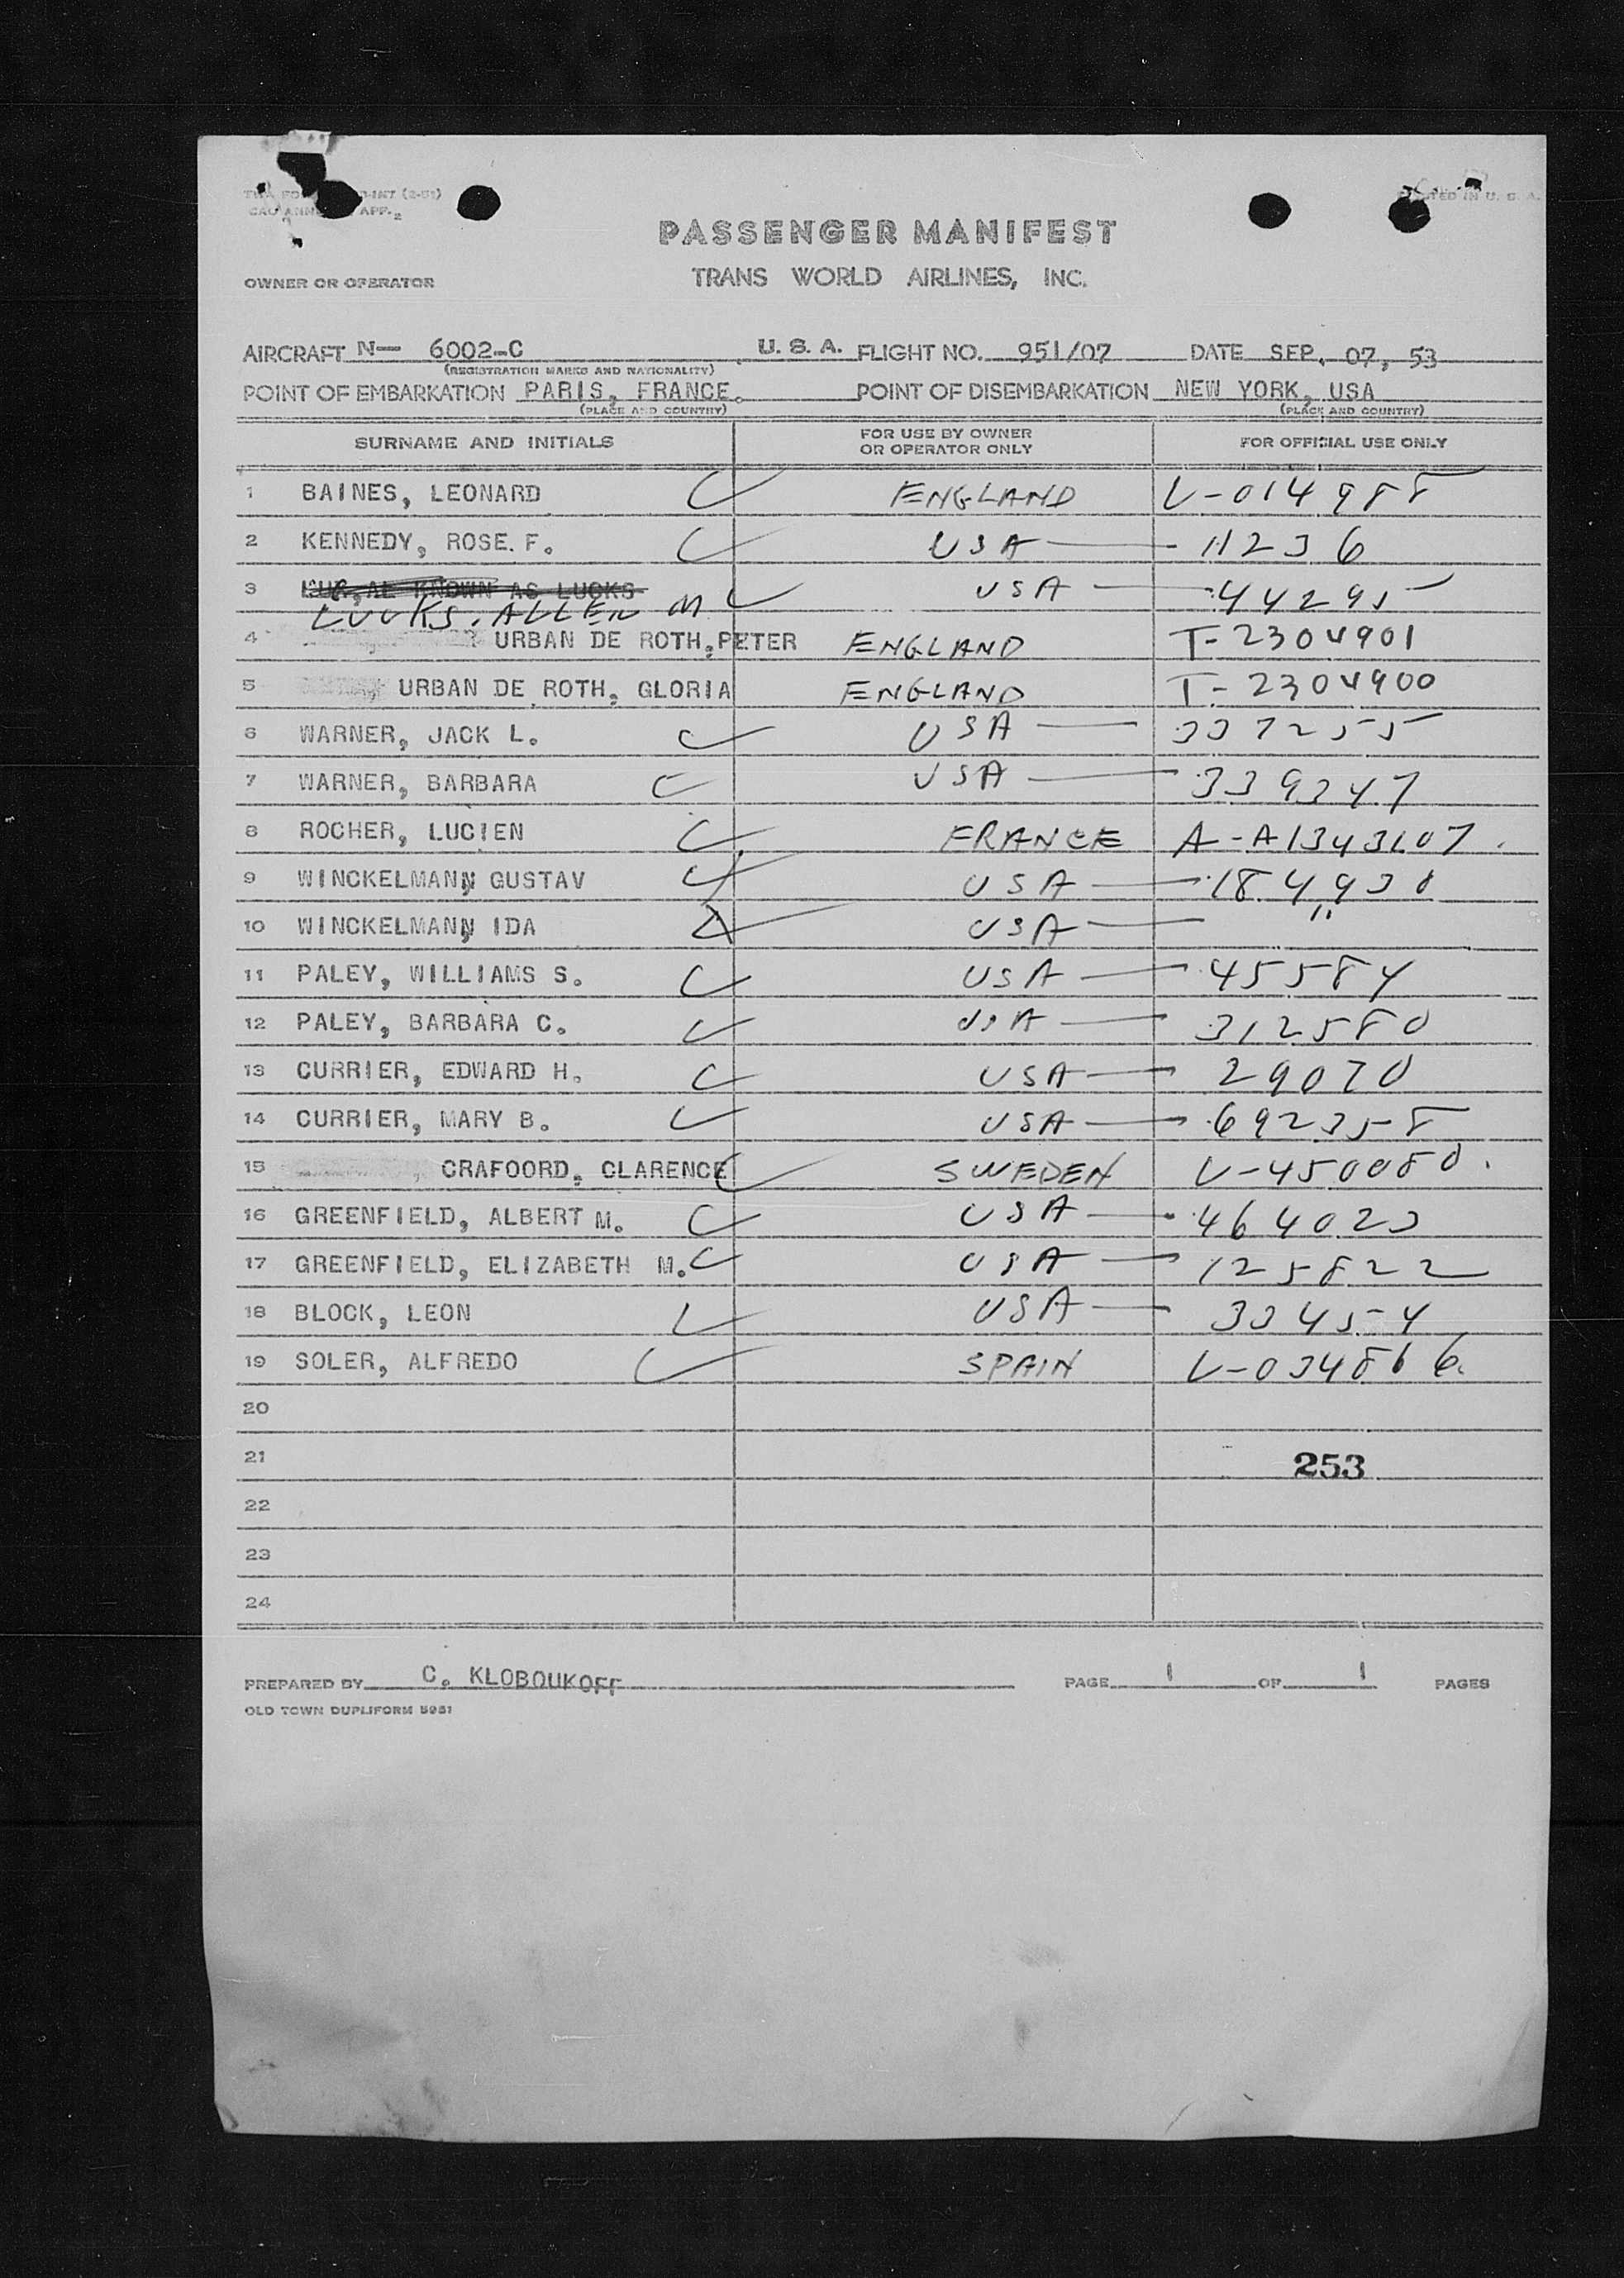 PRINTED IN U. S. A.
PASSENGER MANIFEST
TRANS WORLD AIRLINES, INC.
OWNER OR OPERATOR
AIRCRAFT N— 6002-C U. S. A. FLIGHT NO. 951/07 DATE SEP. 07, 53
(REGISTRATION MARKS AND NATIONALITY)
POINT OF EMBARKATION PARIS, FRANCE. POINT OF DISEMBARKATION NEW YORK, USA
(PLACE AND COUNTRY) (PLACE AND COUNTRY)
SURNAME AND INITIALS FOR USE BY OWNER OR OPERATOR ONLY FOR OFFICIAL USE ONLY
1 BAINES, LEONARD ENGLAND V-014988
2 KENNEDY, ROSE F. USA 11236
3 KNOWN AS LUCKS USA 44295
LUCKS, ALLEN M
4 URBAN DE ROTH, PETER ENGLAND T-2304901
5 URBAN DE ROTH, GLORIA ENGLAND T-2304900
6 WARNER, JACK L. USA 337255
7 WARNER, BARBARA USA 339347
8 ROCHER, LUCIEN FRANCE A-A1343107.
9 WINCKELMANN, GUSTAV USA 184930
10 WINCKELMANN, IDA USA "
11 PALEY, WILLIAMS S. USA 45584
12 PALEY, BARBARA C. USA 312580
13 CURRIER, EDWARD H. USA 29070
14 CURRIER, MARY B. USA 692358
15 CRAFOORD, CLARENCE SWEDEN V-450080.
16 GREENFIELD, ALBERT M. USA 464023
17 GREENFIELD, ELIZABETH M. USA 125822
18 BLOCK, LEON USA 33454
19 SOLER, ALFREDO SPAIN V-034866.
20
21 253
22
23
24
PREPARED BY C. KLOBOUKOFF PAGE 1 OF 1 PAGES
OLD TOWN DUPLIFORM 5951